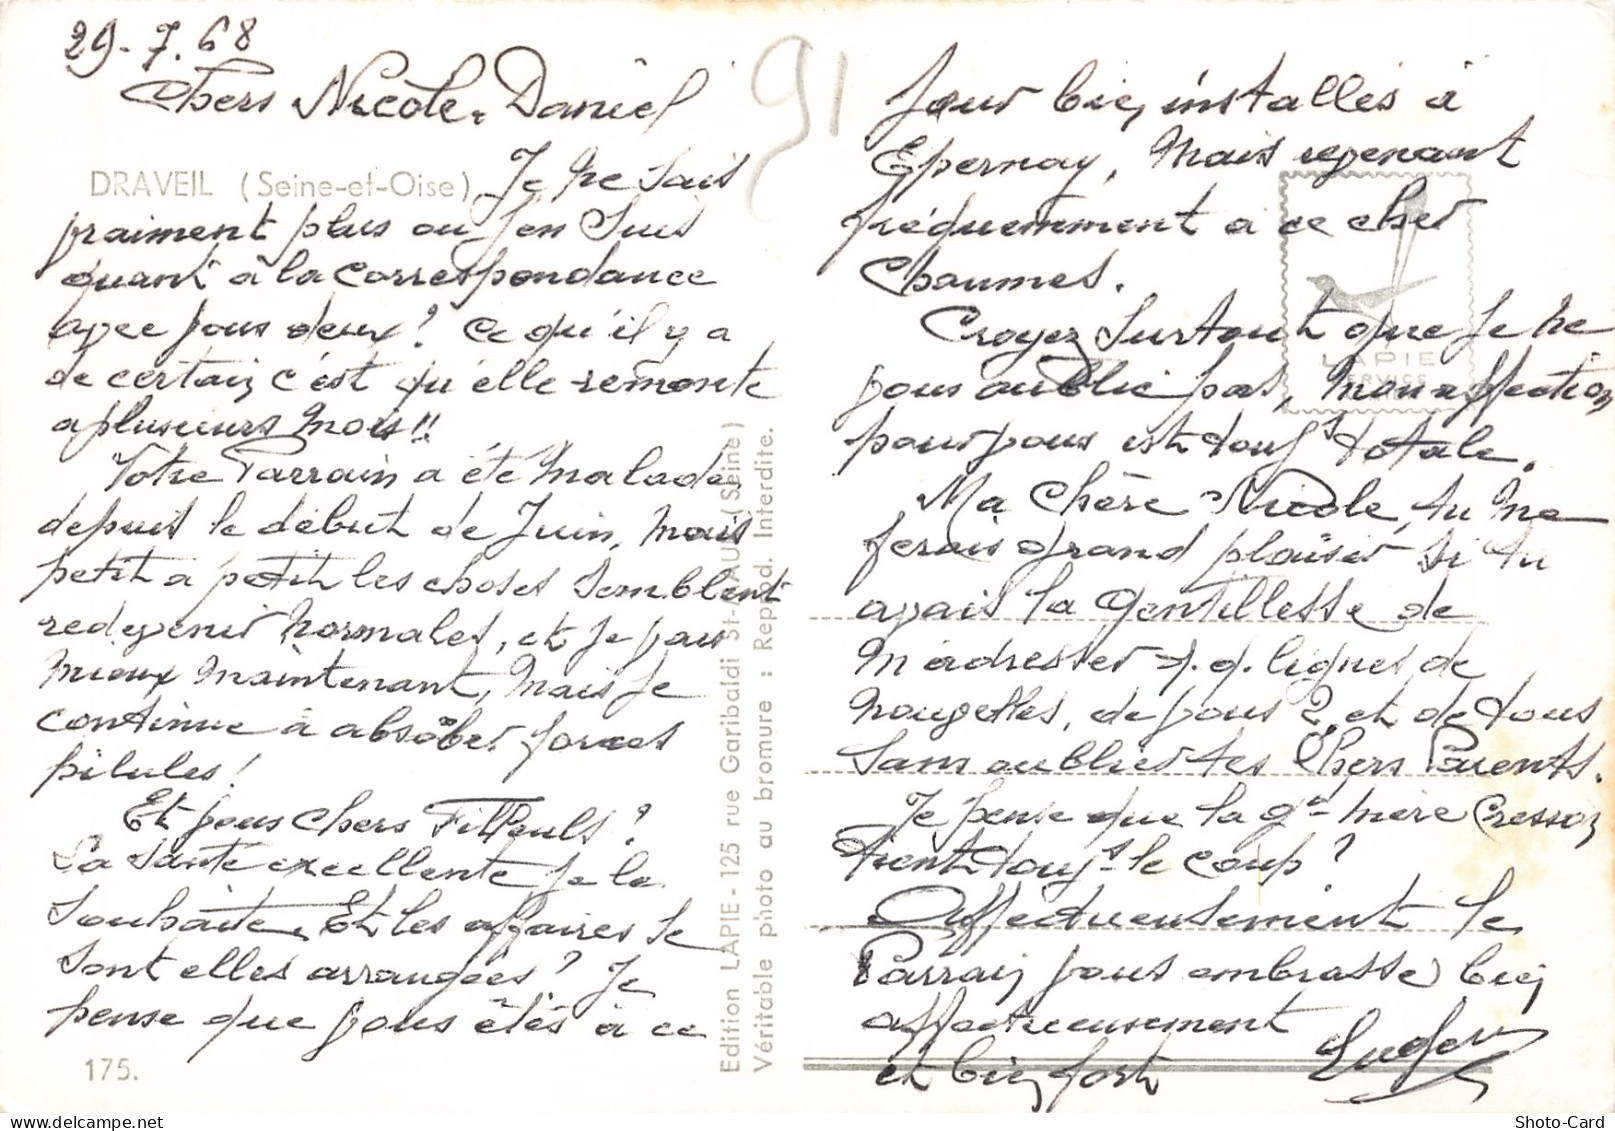 29-7.68
Chers Nicole. Daniel
91
DRAVEIL (Seine-et-Oise)
Je ne sais
vraiment plus où j'en suis
quant à la correspondance
avec vous deux? Ce qu'il y a
de certain c'est qu'elle remonte
a plusieurs mois!!
Votre Parrain a été malade
depuis le début de Juin, mais
petit a petit les choses semblent
redevenir normales, et je vais
mieux maintenant, mais je
continue à absober forces
pilules!
Et vous chers Filleuls?
La santé excellente je le
souhaite. Et les affaires se
sont elles arrangées? Je
pense que vous êtes à ce
175.
Edition LAPIE - 125 rue Garibaldi St-MAUR (Seine)
Véritable photo au bromure : Reprod. Interdite.
jour bien installés à
Epernay, mais revenant
fréquemment a ce cher
Chaumes.
Croyez surtout que je ne
vous oublie pas, mon affection
pour vous est touj's totale.
Ma chère Nicole, tu me
ferais grand plaisir si tu
avais la gentillesse de
m'adresser q.q. lignes de
nouvelles, de vous 2, et de tous
sans oublier tes Chers Parents.
Je pense que la gd mère Cresson
tient touj's le coup?
Affectueusement le
Parrain vous embrasse bien
affectueusement
et bien fort
LAPIE
SERVICE
Shoto-Card